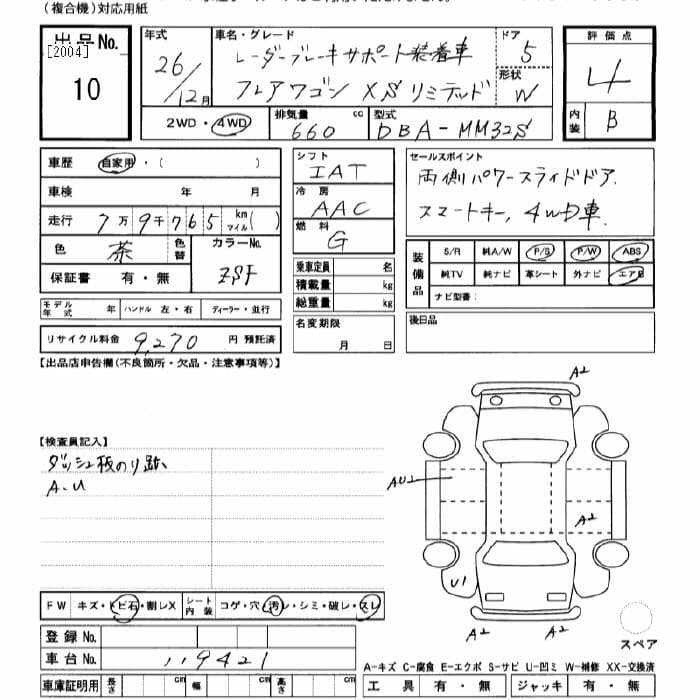 (複合機)対応用紙
出品No.
[2004]
10
年式
26/12月
車名・グレード
レーダーブレーキサポート装着車
フレアワゴン XSリミテッド
ドア
5
形状
W
評価点
4
内装
B
2WD・4WD
排気量
660
cc
型式
DBA-MM32S
車歴
自家用・( )
車検
年 月
走行
7万9千765
km
マイル
( )
色
茶
色替
カラーNo.
ZSF
保証書 有・無
モデル年式
年
ハンドル 左・右
ディーラー・並行
リサイクル料金 9,270 円 預託済
シフト
IAT
冷房
AAC
燃料
G
乗車定員 名
積載量 kg
総重量 kg
名変期限
月 日
セールスポイント
両側パワースライドドア
スマートキー, 4WD車
装備品
S/R
純A/W
P/S
P/W
ABS
純TV
純ナビ
革シート
外ナビ
エアB
ナビ型番:
後日品
【出品店申告欄(不良箇所・欠品・注意事項等)】
【検査員記入】
ダッシュ板のり跡
A-U
A2
AU2
A2
U1
A2
A2
スペア
FW キズ・トビ石・割レX
シート内装
コゲ・穴・汚レ・シミ・破レ・スレ
登録No.
車台No.
119421
車庫証明用
長さ
cm
幅
cm
高さ
cm
A-キズ C-腐食 E-エクボ S-サビ U-凹ミ W-補修 XX-交換済
工具 有・無
ジャッキ 有・無